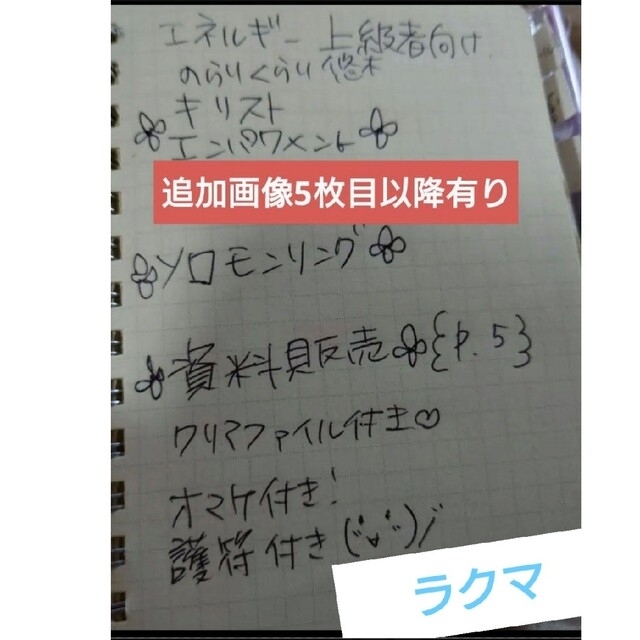 エネルギー上級者向け
のらりくらり悠木
キリスト
エンパワメント
追加画像5枚目以降有り
ソロモンリング
資料販売{p.5}
クリアファイル付き♡
オマケ付き!
護符付き
ラクマ